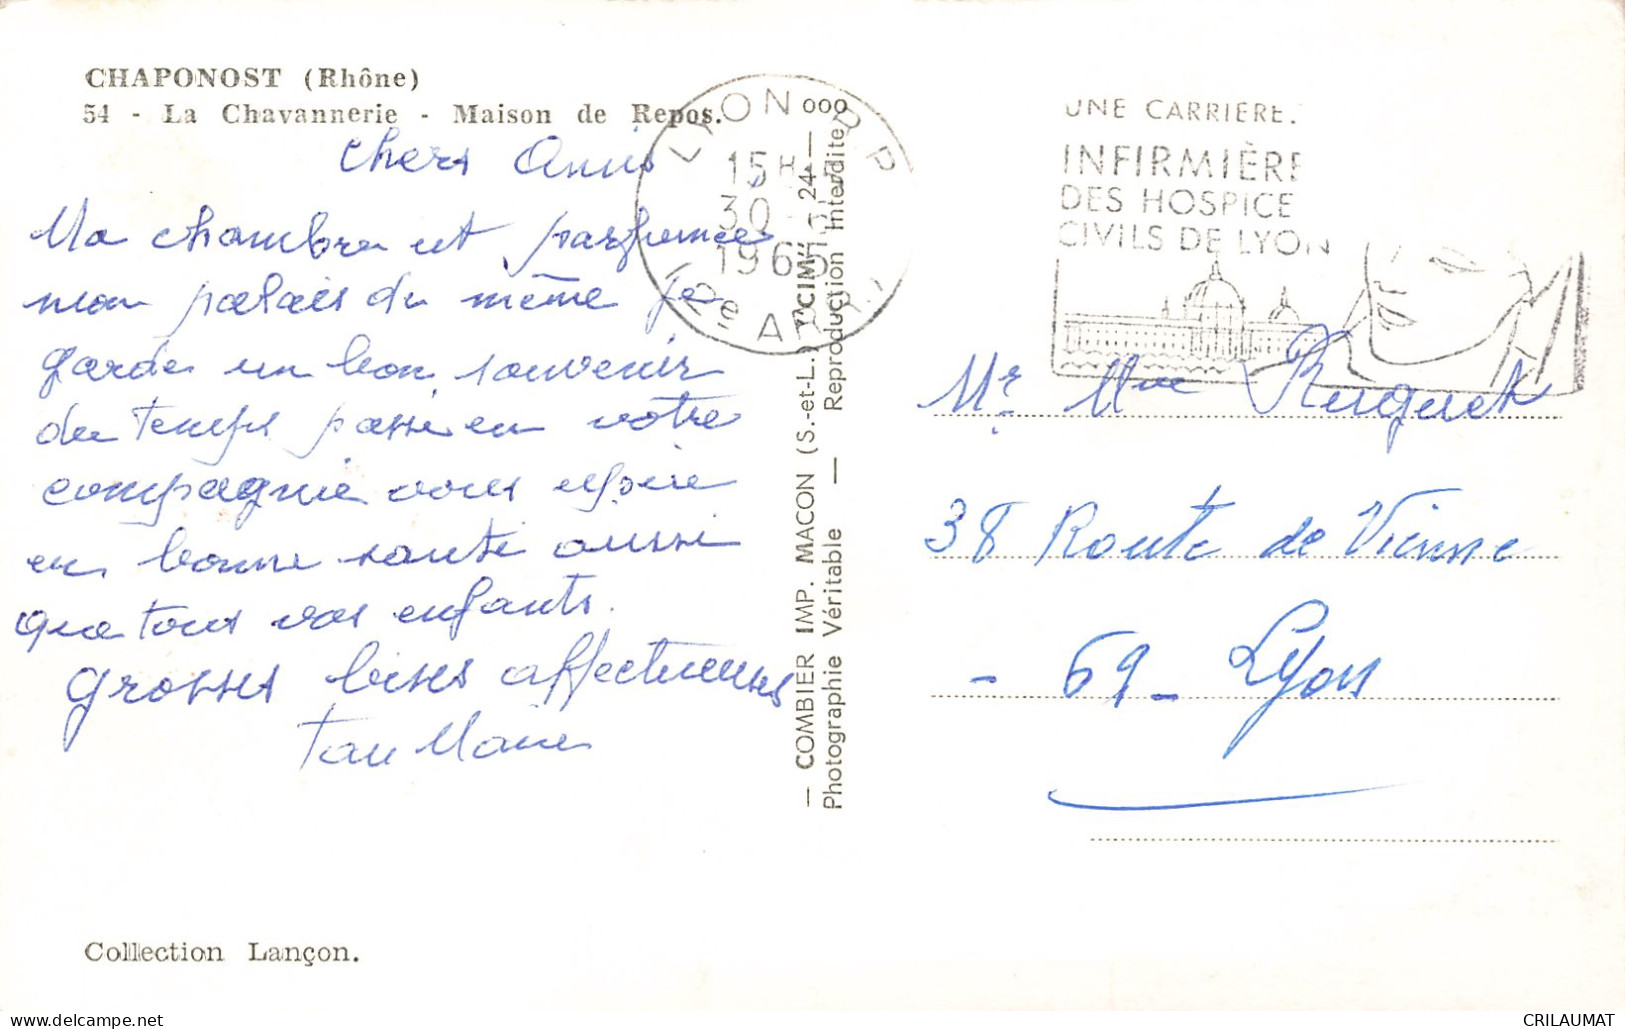 CHAPONOST (Rhône)
54 - La Chavannerie - Maison de Repos.
Chers Amis
Ma chambre est parfumée
mon palais du même je
garde un bon souvenir
du temps passé en votre
compagnie vous espère
en bonne santé aussi
que tous vos enfants.
grosses bises affectueuses
LYON R P
15 H
30
1965
(2e ARR.)
— COMBIER IMP. MACON (S.-et-L.) "CIM" — 24 — 000
Photographie Véritable — Reproduction Interdite
UNE CARRIERE.
INFIRMIÈRE
DES HOSPICE
CIVILS DE LYON
Mr. Mme
38 Route de Vienne
- 69 - Lyon
Collection Lançon.
delcampe.net
CRILAUMAT